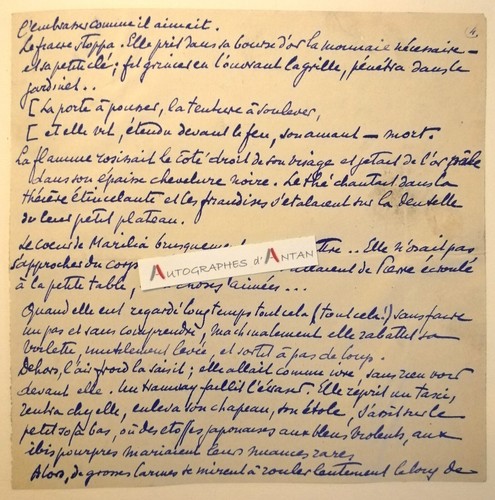 l'embrasser comme il aimait.
4
Le fiacre stoppa. Elle prit dans sa bourse d'or la monnaie nécessaire —
et sa petite clé ; fit grincer en l'ouvrant la grille, pénétra dans le
jardinet..
[ La porte à pousser, la tenture à soulever,
[ et elle vit, étendu devant le feu, son amant — mort.
La flamme rosissait le côté droit de son visage et jetait de l'or pâle
dans son épaisse chevelure noire. Le thé chantait dans la
théière étincelante et les friandises s'étalaient sur la dentelle
du leur petit plateau.
Le coeur de Marilia brusquement .. Elle n'osait pas
s'approcher du corps de Pierre écroulé
à la petite table, choses aimées...
Quand elle eut regardé longtemps tout cela (tout cela!) sans faire
un pas et sans comprendre, machinalement elle rabattit sa
voilette, inutilement levée, et sortit à pas de loup.
Dehors, l'air froid la saisit ; elle allait comme ivre, sans rien voir
devant elle. Un tramway faillit l'écraser. Elle reprit un taxi,
rentra chez elle, enleva son chapeau, son étole, s'assit sur le
petit sofa bas, où des étoffes japonaises aux bleus violents, aux
ibis pourpres mariaient leurs nuances rares
Alors, de grosses larmes se mirent à rouler lentement le long de
AUTOGRAPHES D'ANTAN